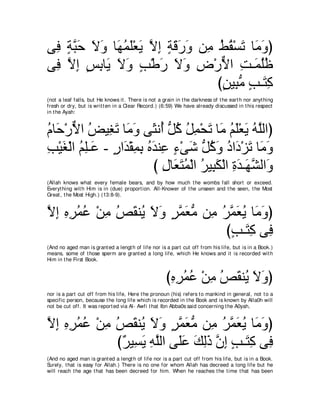 (وَمَا تَسْقُطُ مِن وَرَقَةٍ إِلاَّ يَعْلَمُهَا وَلاَ حَبَّةٍ فِى
ظُلُمَـتِ الاٌّرْضِ وَلاَ رَطْبٍ وَلاَ يَابِسٍ إِلاَّ فِى
كِتَـبٍ مُّبِينٍ)
(not a leaf falls, but He knows it. There is not a grain in the darkness of the earth nor anything
fresh or dry, but is written in a Clear Record.) (6:59) We have already discussed this in respect
in the Ayah:
(اللَّهُ يَعْلَمُ مَا تَحْمِلُ كُلُّ أُنثَى وَمَا تَغِيضُ الاٌّرْحَامُ
وَمَا تَزْدَادُ وَكُلُّ شَىْءٍ عِندَهُ بِمِقْدَارٍ - عَـلِمُ الْغَيْبِ
وَالشَّهَـدَةِ الْكَبِيرُ الْمُتَعَالِ )
(Allah knows what every female bears, and by how much the wombs fall short or exceed.
Everything with Him is in (due) proportion. All-Knower of the unseen and the seen, the Most
Great, the Most High.) (13:8-9).
(وَمَا يُعَمَّرُ مِن مُّعَمَّرٍ وَلاَ يُنقَصُ مِنْ عُمُرِهِ إِلاَّ
فِى كِتَـبٍ)
(And no aged man is granted a length of life nor is a part cut off from his life, but is in a Book.)
means, some of those sperm are granted a long life, which He knows and it is recorded with
Him in the First Book.
(وَلاَ يُنقَصُ مِنْ عُمُرِهِ)
nor is a part cut off from his life, Here the pronoun (his) refers to mankind in general, not to a
specific person, because the long life which is recorded in the Book and is known by Allah will
not be cut off. It was reported via Al-`Awfi that Ibn `Abbas said concerning the Ayah,
(وَمَا يُعَمَّرُ مِن مُّعَمَّرٍ وَلاَ يُنقَصُ مِنْ عُمُرِهِ إِلاَّ
فِى كِتَـبٍ إِنَّ ذَلِكَ عَلَى اللَّهِ يَسِيرٌ)
(And no aged man is granted a length of life nor is a part cut off from his life, but is in a Book.
Surely, that is easy for Allah.) There is no one for whom Allah has decreed a long life but he
will reach the age that has been decreed for him. When he reaches the time that has been